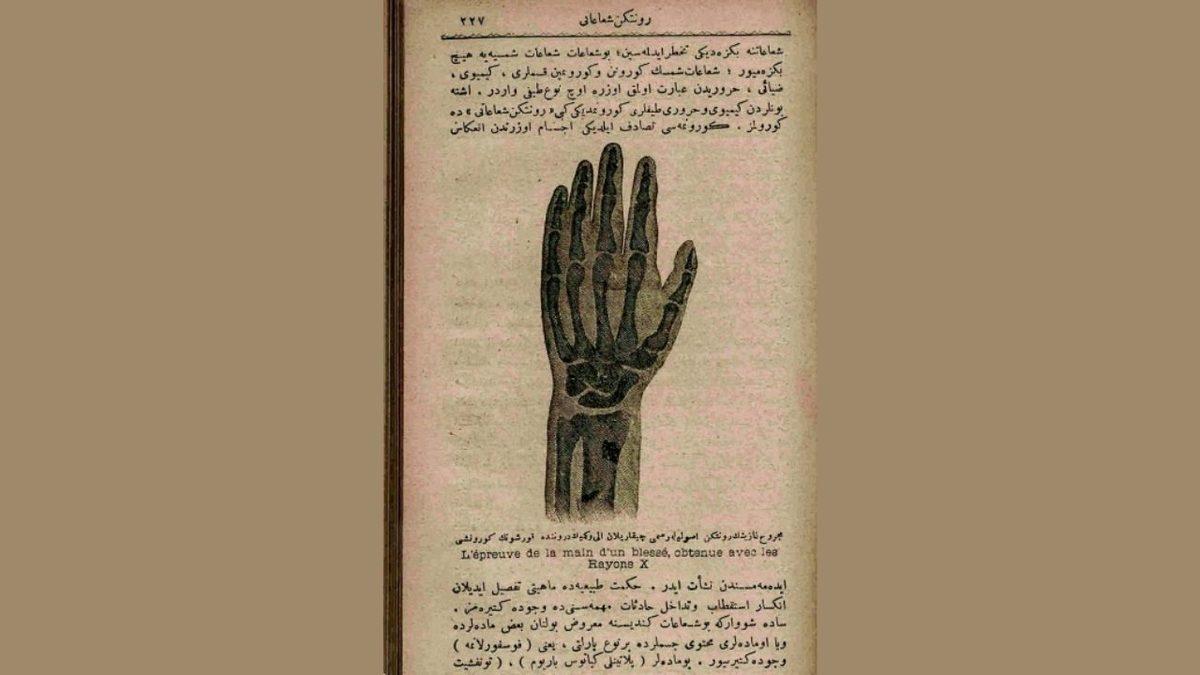 ٢٢٧
رونتكن شعاعاتى
شعاعاتنه بكزه‌ديكى تخطر ايدلمه‌سين؛ بو شعاعات شعاعات شمسيه‌يه هيچ
بكزه‌ميور ؛ شعاعات شمسك كورونن وكورونمين قسملرى ، كيميوى ،
ضيائى ، حروريدن عبارت اولمق اوزره اوچ نوع طيفى واردر . اشته
بونلردن كيميوى وحرورى طيفلرى كورونمديكى كبى « رونتكن شعاعاتى » ده
كورولمز . كورونمه‌سى تصادف ايلديكى اجسام اوزرندن انعكاس
مجروح نازيفك رونتكن اصوليله رسمى چيقاريلان الى وكميك دروننده قورشونك كورونشى
L'épreuve de la main d'un blessé, obtenue avec les
Rayons X
ايده‌مه‌مسندن نشأت ايدر . حكمت طبيعيه‌ده ماهيتى تفصيل ايديلان
انكسار استقطاب وتداخل حادثات مهمه‌سنى‌ده وجوده كتيره‌مز .
ساده شو وار كه بو شعاعات كنديسنه معروض بولنان بعض ماده‌لرده
ويا او ماده‌لرى محتوى جسملرده بر نوع پارلتى ، يعنى ( فوسفورلانمه )
وجوده كتيريور . بو ماده‌لر ( پلاتينلى كيانوس باريوم ) ، ( تونغستيت